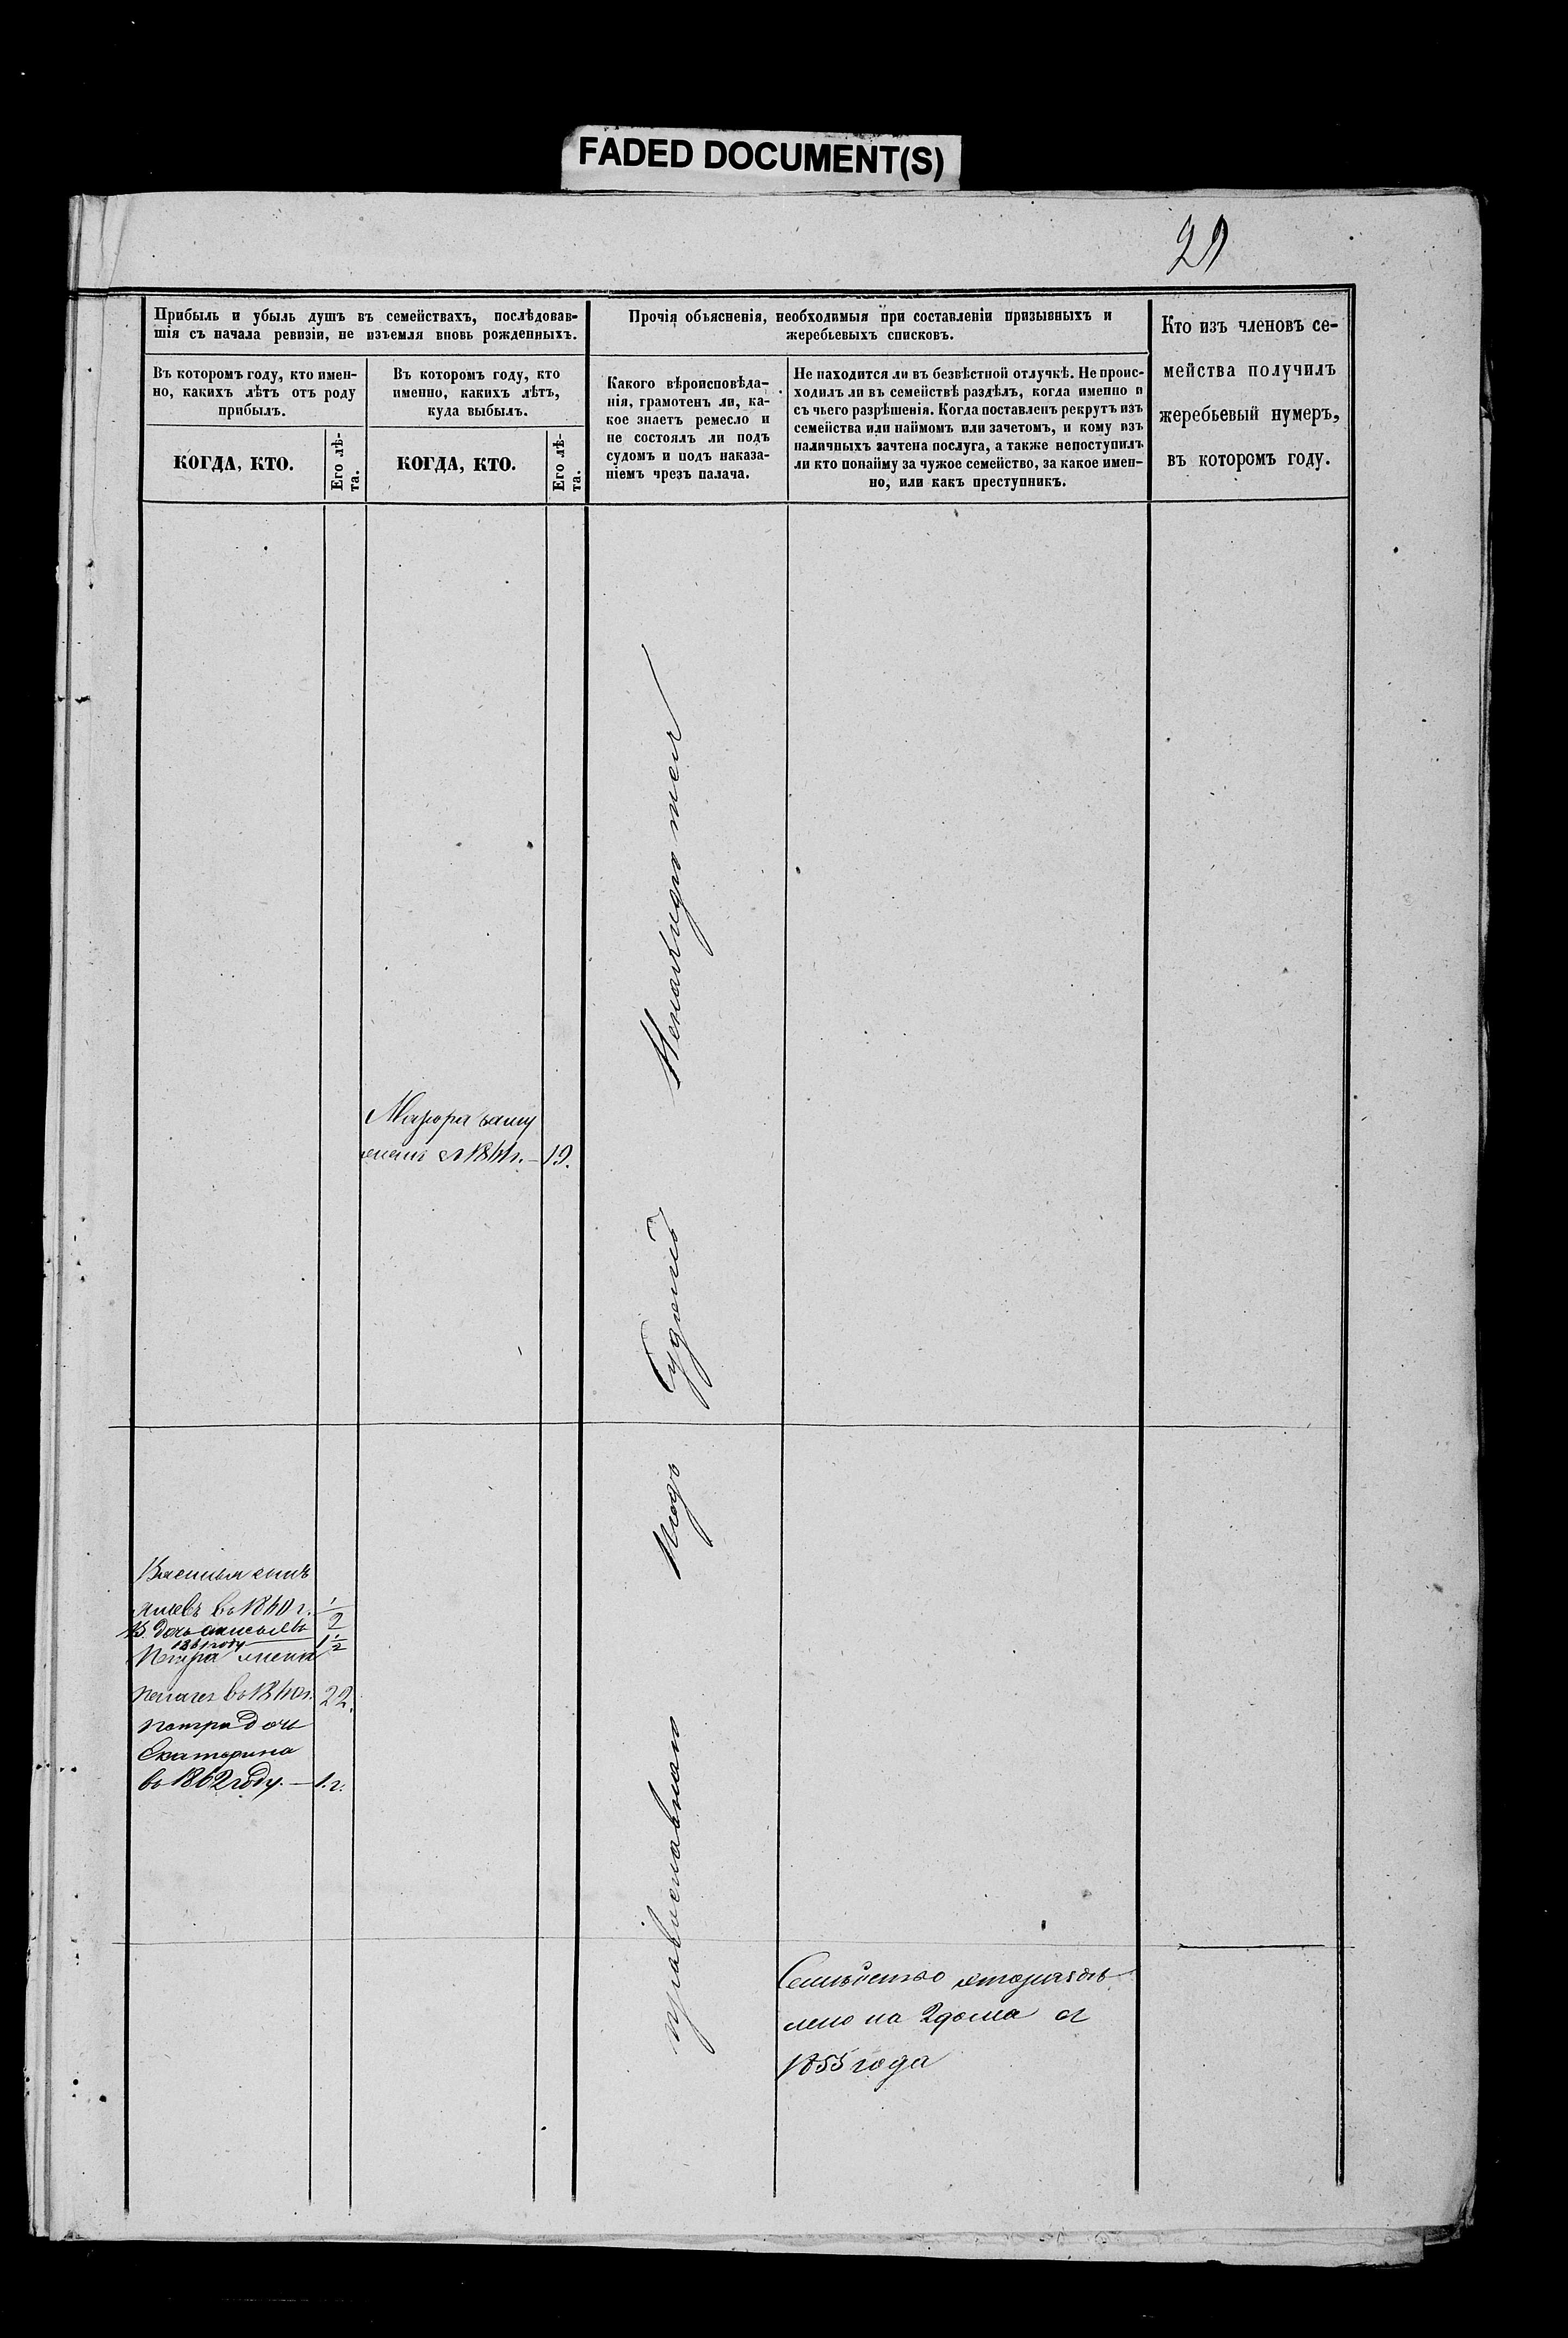 FADED DOCUMENT(S)
29
Прибыль и убыль душъ въ семействахъ, послѣдовав-
шія съ начала ревизіи, не изъемля вновь рожденныхъ.
Въ которомъ году, кто имен-
но, какихъ лѣтъ отъ роду
прибылъ.
КОГДА, КТО.
Его лѣ-
та.
Въ которомъ году, кто
именно, какихъ лѣтъ,
куда выбылъ.
КОГДА, КТО.
Его лѣ-
та.
Прочія объясненія, необходимыя при составленіи призывныхъ и
жеребьевыхъ списковъ.
Какого вѣроисповѣда-
нія, грамотенъ ли, ка-
кое знаетъ ремесло и
не состоялъ ли подъ
судомъ и подъ наказа-
ніемъ чрезъ палача.
Не находится ли въ безвѣстной отлучкѣ. Не проис-
ходилъ ли въ семействѣ раздѣлъ, когда именно и
съ чьего разрѣшенія. Когда поставленъ рекрутъ изъ
семейства или наймомъ или зачетомъ, и кому изъ
наличныхъ зачтена послуга, а также непоступилъ
ли кто понайму за чужое семейство, за какое имен-
но, или какъ преступникъ.
Кто изъ членовъ се-
мейства получилъ
жеребьевый нумеръ,
въ которомъ году.
19.
сынъ
въ 1860 г.
дочь
1861 году
1½
Петра жена
22.
петра дочь
Екатерина
въ 1862 году. — 1. г.
православнаго
Семейство
лено на 2 дома съ
1855 года